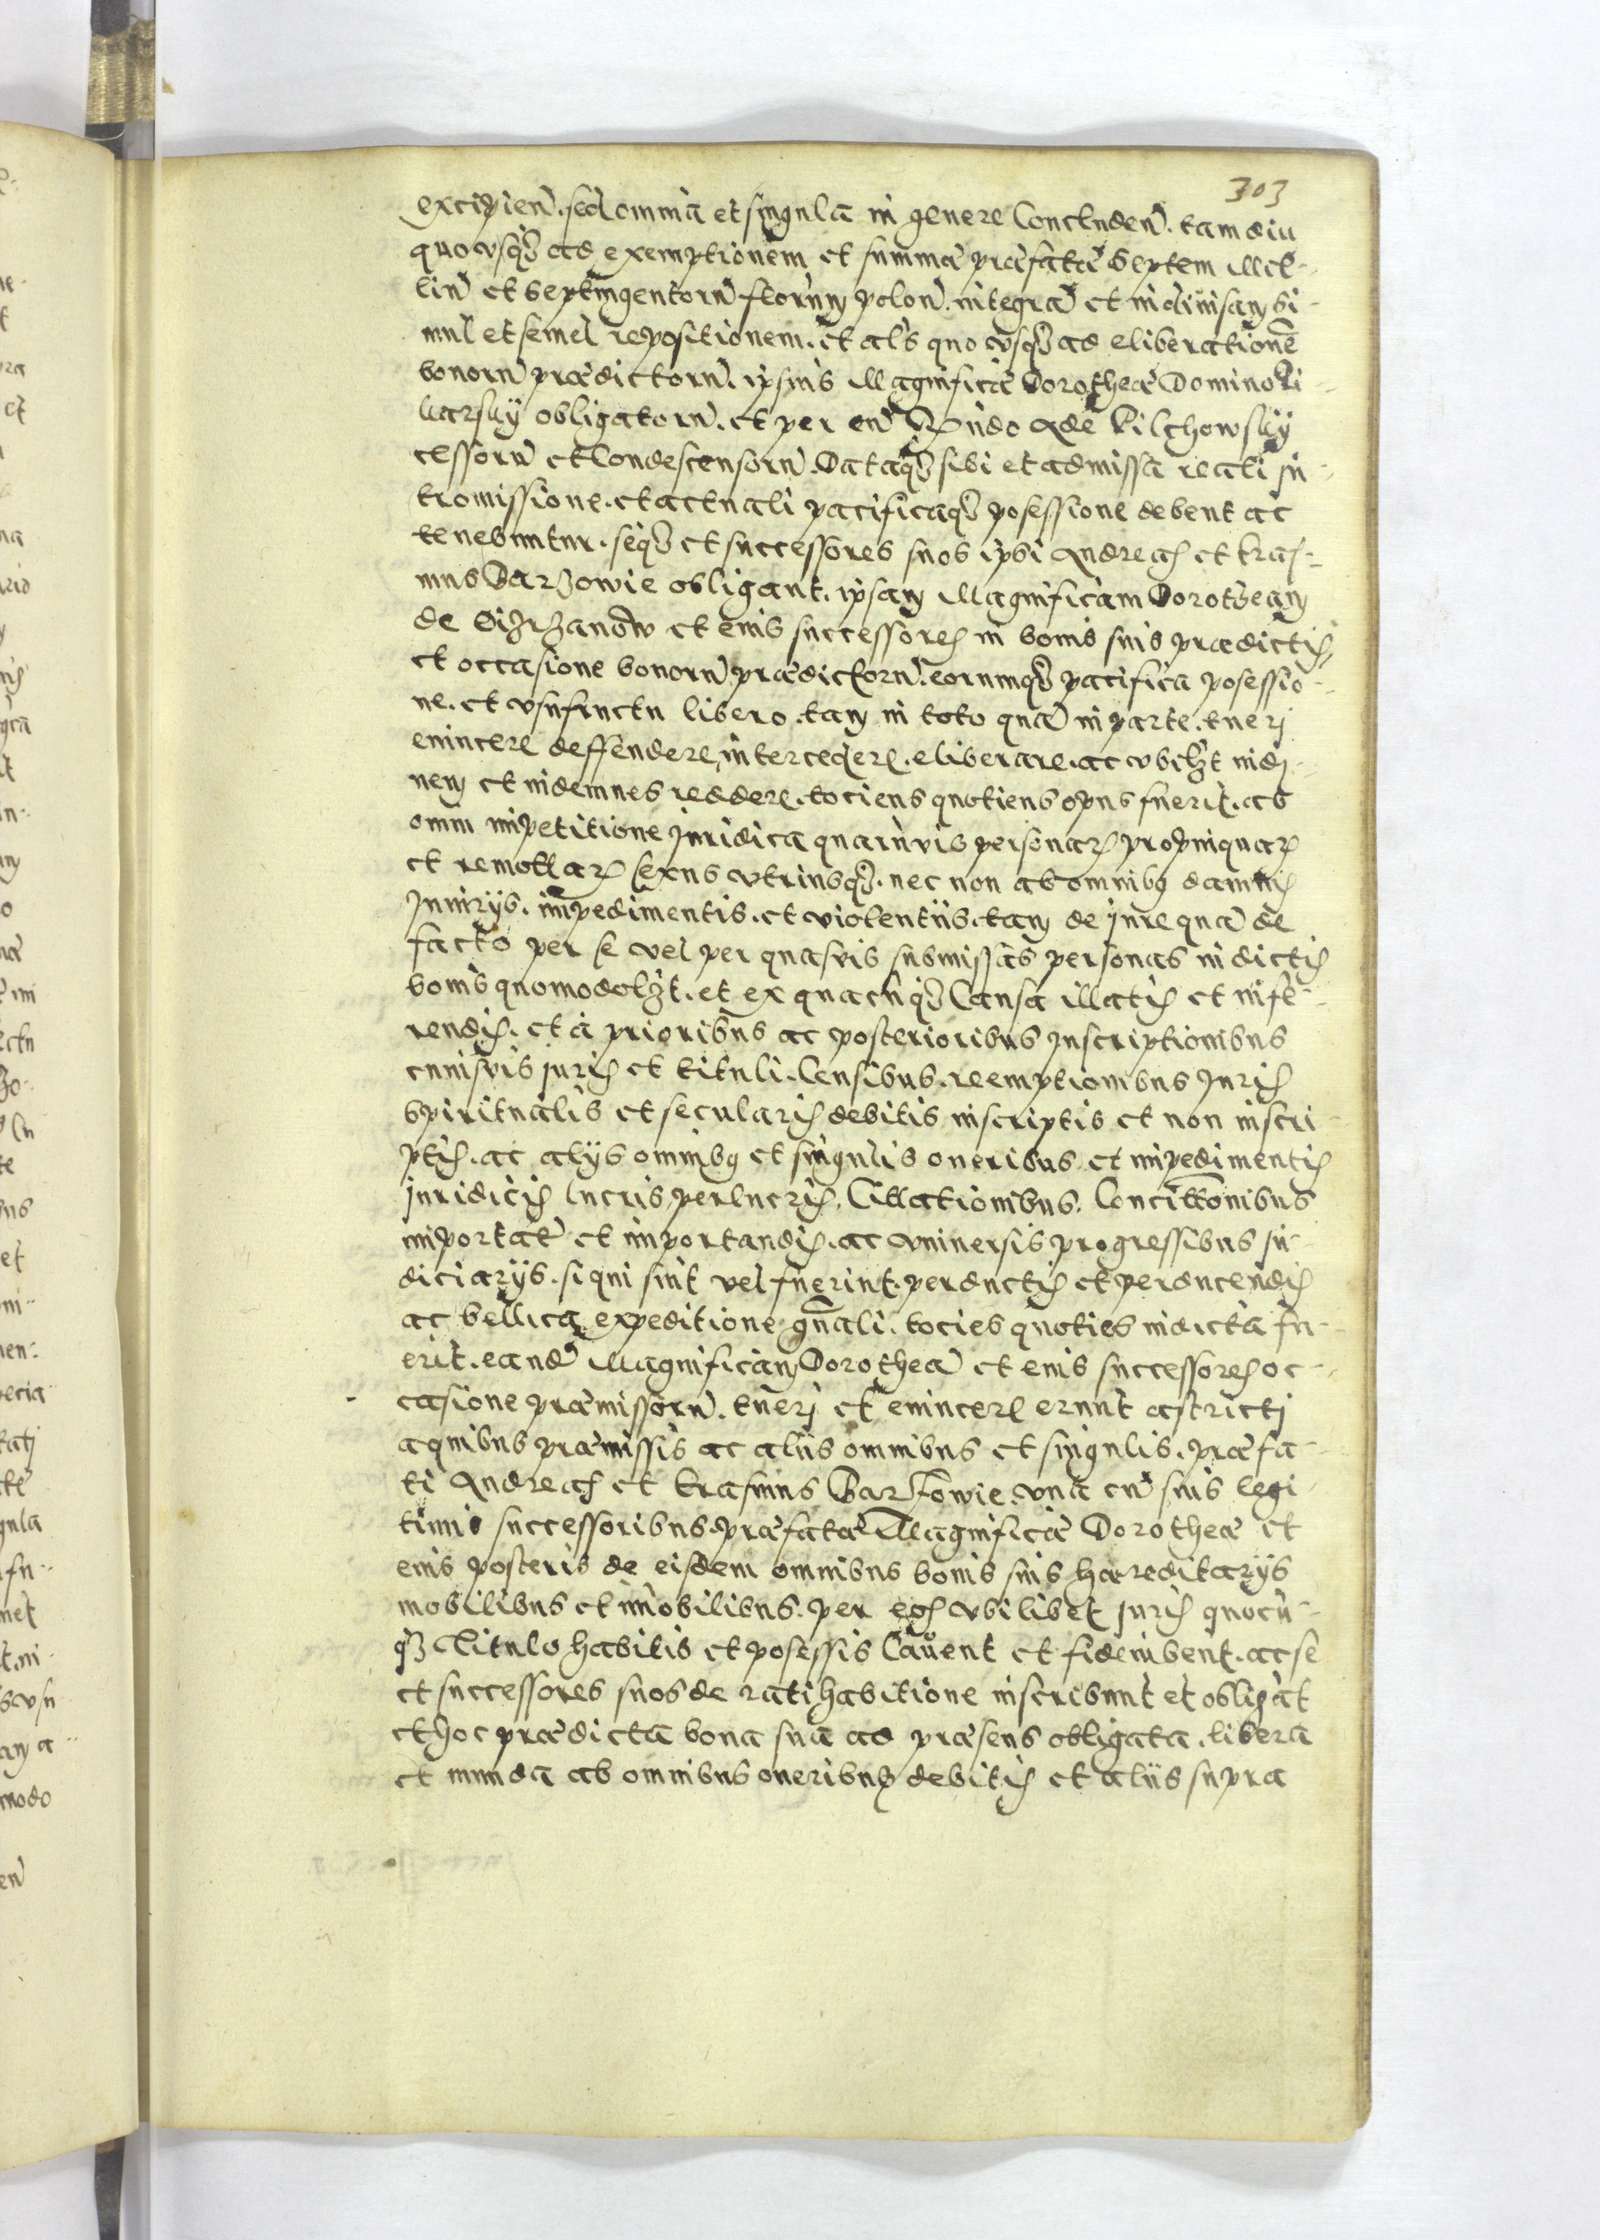 303
excipien̄. sed omnia et singula in genere concluden̄. tamdiu
quousq3 ad exemptionem et summæ præfatæ Septem Mil-
liū et Septingentorū florenoꝝ polon̄. integrā et indiuisam si-
mul et semel repositionem. et als quo usq3 ad eliberationē
bonorū prædictorū. ipsius Magnificæ Dorotheæ Domino
obligatorū. et per Adē Pilchowsky
cessorū et condescensorū. Dataq3 sibi et admissa reali in-
tromissione. et actuali pacificaq3 posessione debent ac
tenebuntur. seq3 et successores suos ipsi Andreas et Eras-
mus Barzowie obligant. ipsam Magnificam Dorotheam
de et eius successores in bonis suis prædictis
et occasione bonorū prædictorū. eorumq3 pacifica posessio-
ne. et usufructu libero. tam in toto quā in parte. tueri
euincere deffendere, intercedere. eliberare. ac ubilzt inde-
nem et indemnes reddere. tociens quotiens opus fuerit. ab
omni impetitione juridica quarūvis personaꝝ propinquaꝝ
et remotiaꝝ sexus utriusq3. nec non ab omnibꝰ damnis
Iniurijs. impedimentis. et violentiis. tam de jure quā de
facto per se vel per quasvis submissas personas in dictis
bonis quomodolzt. et ex quacūq3 causa illatis et infe-
rendis. et à prioribus ac posterioribus Inscriptionibus
cuiusvis juris et tituli. Censibus. reemptionibus Iuris
spiritualis et secularis debitis inscriptis et non inscri-
ptis. ac alijs omnibꝰ et singulis oneribus et impedimentis
juridicis lucris perlucris. Citationibus. Concitōnibus
importat̄ et importandis. ac uniuersis progressibus iu-
diciarijs. si qui sint vel fuerint. perductis et perducendis
ac bellica expeditione gn̄ali. tocies quoties indicta fu-
erit. eandē Magnificam Dorotheā et eius successores oc-
casione præmissorū. tueri et euincere erunt astricti
a quibus præmissis ac aliis omnibus et singulis. præfa-
ti Andreas et Erasmus Barzowie. una cū suis legi-
timis successoribus. præfatæ Magnificæ Dorotheæ et
eius posteris de eisdem omnibus bonis suis hæreditarijs
mobilibus et im̄obilibus. per eos ubilibet juris quocū-
q3 Titulo habitis et posessis Cauent et fideiubent. ac se
et successores suos de ratihabitione inscribunt et obligāt
et hoc prædicta bona sua ad præsens obligata. libera
et munda ab omnibus oneribus debitis et aliis supra